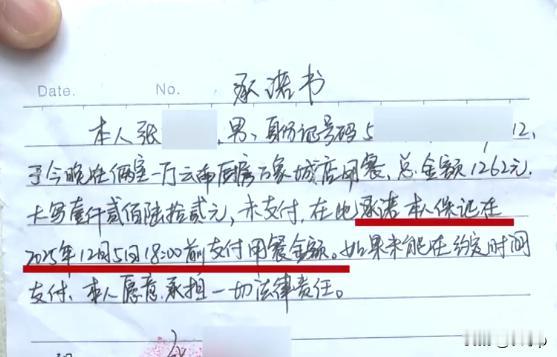 承诺书
Date. No.
本人张 男、身份证号码5 12,
于今晚在俩室一厅云南厨房万象城店用餐、总金额1262元.
大写壹仟贰佰陆拾贰元,未支付,在此承诺本人保证在
2025年12月5日18:00前支付用餐金额。如果未能在约定时间
支付、本人愿意承担一切法律责任。